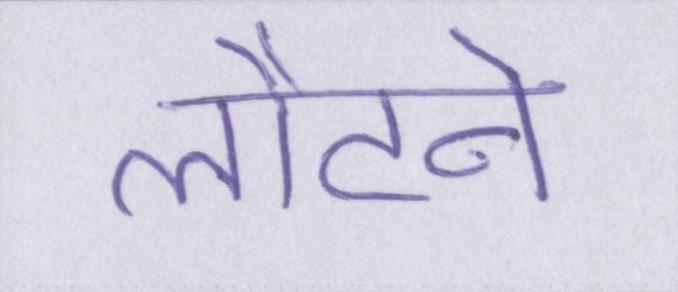 लौटने